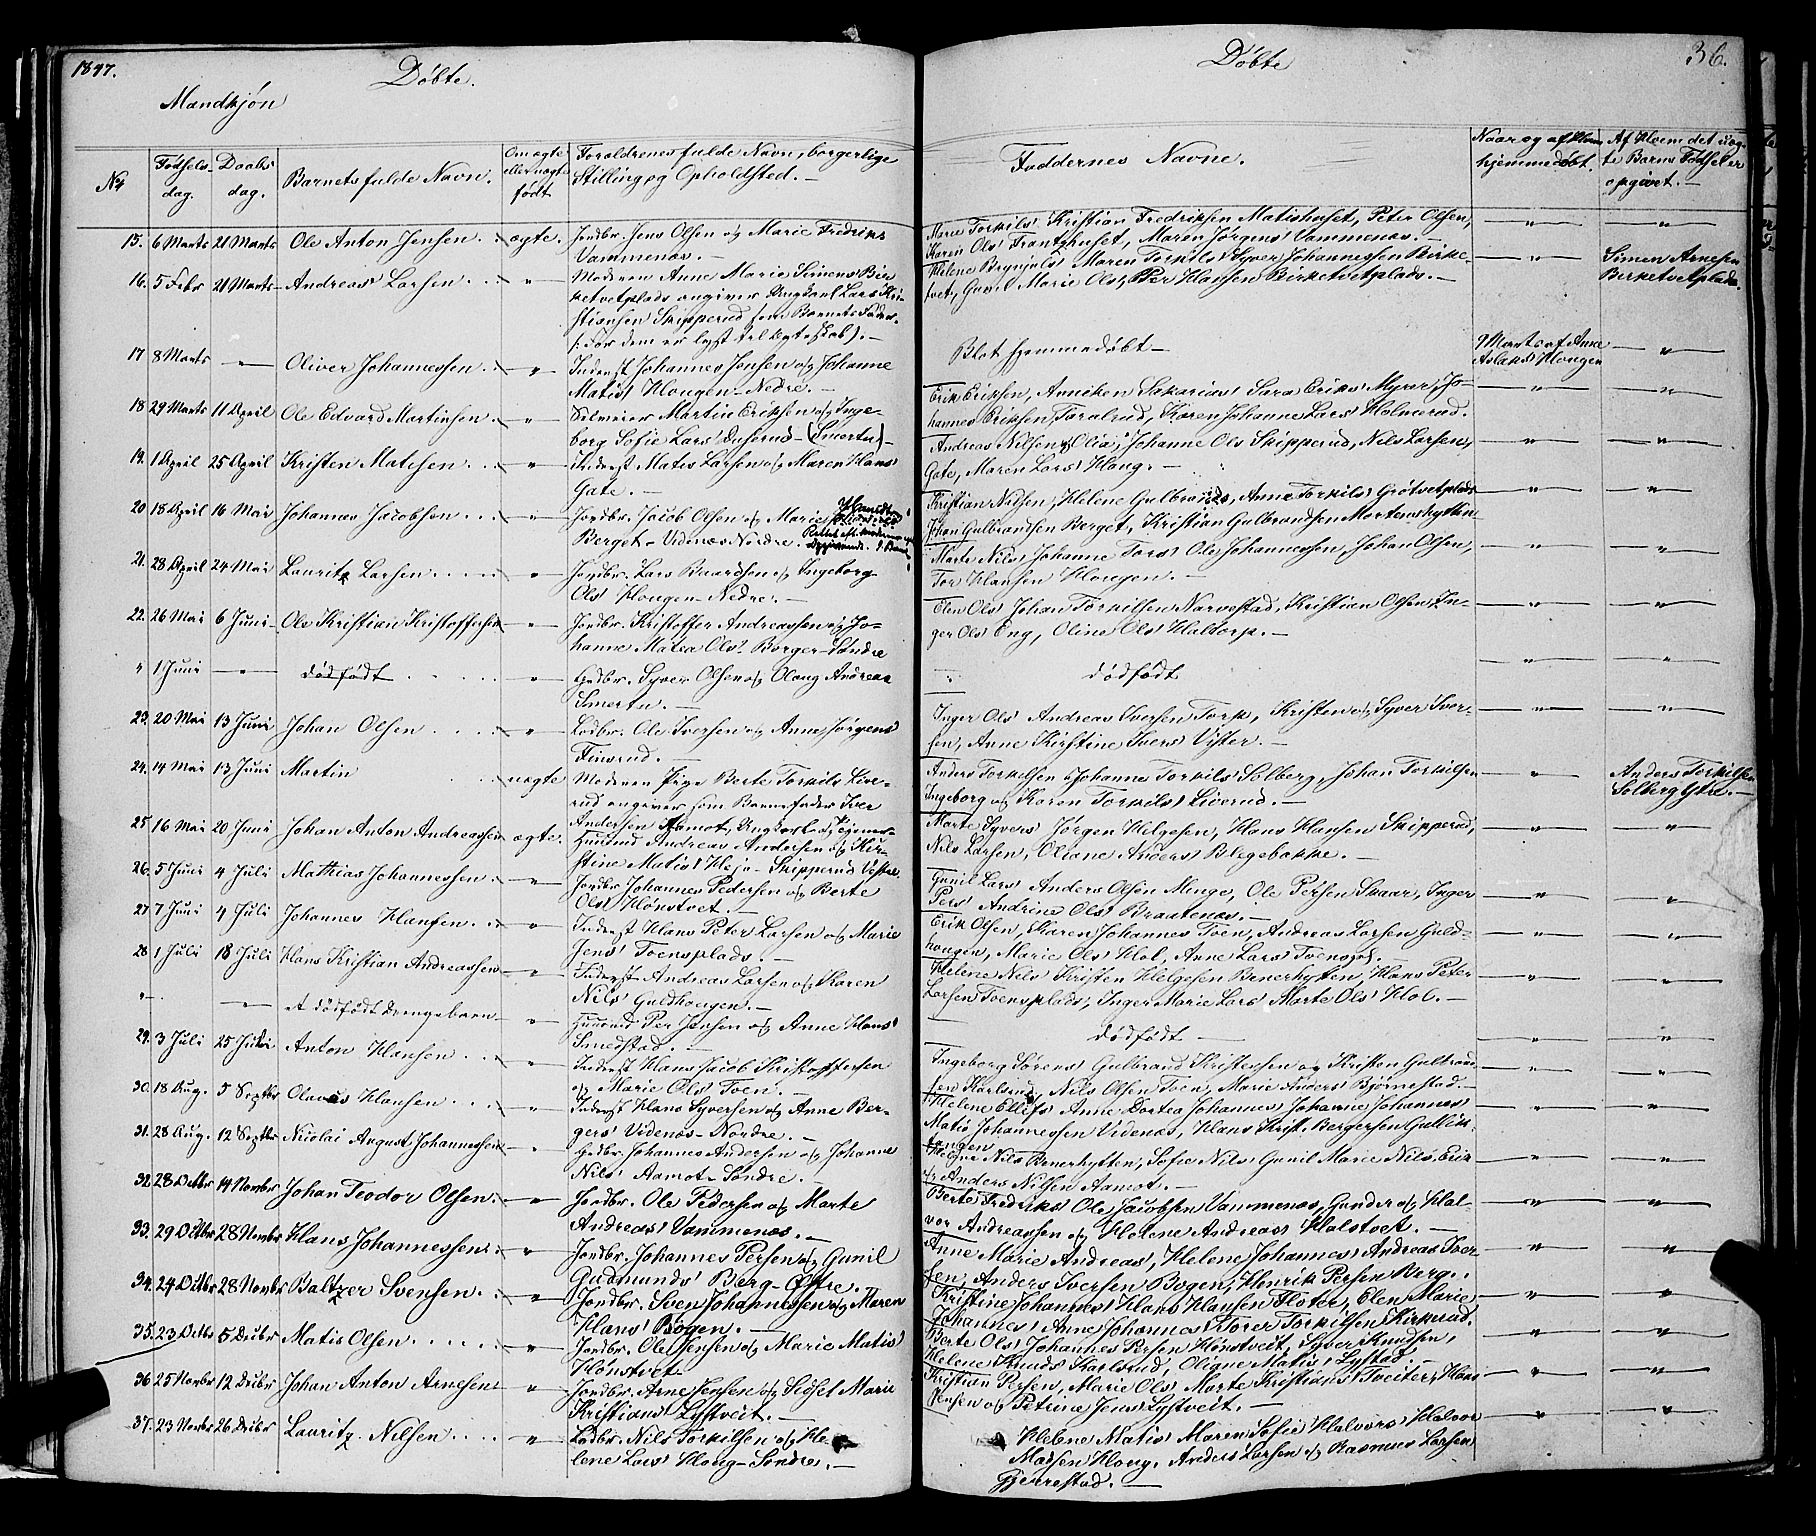 1847.
Døbte.
Mandkjøn
No
Fødsels dag.
Daabs dag.
Barnets fulde Navn.
Om ægte eller uægte født
Forældrenes fulde Navn, borgerlige Stilling og Opholdsted. —
15. 6 Marts 21 Marts Ole Anton Jensen . . ægte. Jordbr. Jens Olsen og Marie Fredriks
Vammenæs. —
16. 5 Febr 21 Marts Andreas Larsen . . " Moderen Anne Marie Simens Bir
ketvetplads angiver Ungkarl Lars Kri
stiansen Skipperud som Barnets Fader
(: For dem er lyst til Ægteskab). —
17 8 Marts — " — Oliver Johannessen . " Inderst Johannes Jensen og Johanne
Matis' Hougen-Nedre. —
18 29 Marts 11 April Ole Edvard Martinsen . " Selveier Martin Eriksen og Inge-
borg Sofie Lars' Duserud - (Smertu) -
19. 1 April 25 April Kristen Matisen . . . " Inderst Matis Larsen og Maren Hans'
Gate. —
20 18 April 16 Mai Johannes Jacobsen . . " Jordbr. Jacob Olsen og Marie
Berget - Videnæs Nordre.
21. 28 April 24 Mai Lauritz Larsen . . . . . " Jordbr. Lars Baardsen og Ingeborg
Ols' Hougen-Nedre. —
22. 26 Mai 6 Juni Ole Kristian Kristoffersen " Jordbr. Kristoffer Andreassen og Jo-
hanne Matea Ols' Borger-Søndre
" 1 Juni — " — dødfødt . . . . " Grdbr. Syver Olsen og Olaug Andreas
Smertu. —
23. 20 Mai 13 Juni Johan Olsen . . . . " Lodbr. Ole Iversen og Anne Jørgens'
Finsrud. —
24. 14 Mai 13 Juni Martin uægte Moderen Pige Berte Torkils Live-
rud angiver som Barnefader Iver
Andersen Aamot, Ungkarl og Tjener
25. 16 Mai 20 Juni Johan Anton Andreassen ægte. Huusmd Andreas Andersen og Kir-
stine Matis' Skipperud Vestre.
26. 5 Juni 4 Juli Mathias Johannessen . " Jordbr. Johannes Pedersen og Berte
Ols' Hønstvet. —
27 7 Juni 4 Juli Johannes Hansen . . " Inderst Hans Peter Larsen og Marie
Jens' Toensplads. —
28 1 Juli 18 Juli Hans Kristian Andreassen " Inderst Andreas Larsen og Karen
Nils' Guldhougen. —
" — " — et dødfødt Drengebarn " Huusmd Per Jensen og Anne Hans'
Smedstad. —
29. 3 Juli 25 Juli Anton Hansen . . . " Inderst Hans Jacob Kristoffersen
og Marie Ols' Toen. —
30. 18 Aug. 5 Septbr Olavus Hansen . . . " Inderst Hans Syversen og Anne Ber-
gers' Videnæs-Nordre. —
31. 28 Aug. 12 Septbr Nicolai August Johannessen " Grdbr. Johannes Andersen og Johanne
Nils' Aamot-Søndre. —
32. 28 Octbr 14 Novbr Johan Teodor Olsen . " Jordbr. Ole Pedersen og Marte
Andreas' Vammenæs. —
33. 29 Octbr 28 Novbr Hans Johannessen . " Jordbr. Johannes Persen og Gunil
Gudmunds' Berg-Østre. —
34. 24 Octbr 28 Novbr Baltzer Svensen . . " Jordbr. Sven Johannessen og Maren
Hans' Bøgen. —
35. 23 Octbr 5 Decbr Matis Olsen . . . . . " Jordbr. Ole Jensen og Marie Matis'
Hønstvet —
36 25 Novbr 12 Decbr Johan Anton Arnesen " Jordbr. Arne Jensen og Sedsel Marie
Kristians' Lystveit. —
37. 23 Novbr 26 Decbr Lauritz Nilsen . . . . " Lodbr. Nils Torkilsen og He
lene Lars' Houg-Søndre. —
Døbte
36.
Faddernes Navne.
Naar og af Hvem hjemmedøbt.
Af Hvem det uægte Barns Fødsel er opgivet. —
Marie Torkils' Kristian Fredriksen Matishuset, Peter Olsen,
Karen Ols' Frantzhuset, Maren Jørgens' Vammenæs. —
Helene Brynjuls' Maren Torkils' Syver Johannessen Birke-
tvet, Gunil Marie Ols' Per Hansen Birketvetplads. —
Simen Arnesen
Birketvetplads.
Blot hjemmedøbt —
9 Marts af Anne
Aslaks' Hougen
Erik Eriksen, Anniken Sakarias' Sara Eriks' Myrer, Jo-
hannes Eriksen Taralrud, Karen Johanne Lars' Holmerud.
Andreas Nilsen og Olia, Johanne Ols' Skipperud, Nils Larsen,
Gate, Maren Lars' Houg. —
Kristian Nilsen, Helene Gulbrands, Anne Torkils' Grøtvetplads
Johan Gulbrandsen Berget, Kristian Gulbrandsen Martenshytten
Marte Nils' Johanne Tors' Ole Johannessen, Johan Olsen,
Tor Hansen Hougen. —
Elen Ols' Johan Torkilsen Narvestad, Kristian Olsen In-
ger Ols' Eng, Oline Ols' Haltorp. —
dødfødt
Inger Ols' Andreas Iversen Torp, Kristen og Syver Iver-
sen, Anne Kirstine Ivers' Vister. —
Anders Torkilsen Johannes Torkils' Solberg, Johan Torkilsen
Ingeborg og Karen Torkils' Liverud. —
Anders Torkilsen
Solberg Ytre. —
Marte Syvers' Jørgen Helgesen, Hans Hansen Skipperud,
Nils Larsen, Oliane Anders' Blegebakke. —
Gunil Lars' Anders Olsen Minge, Ole Persen Skaar, Inger
Pers' Andrine Ols' Braatenæs. —
Erik Olsen, Karen Johannes' Toen, Andreas Larsen Guld-
hougen, Marie Ols' Hol, Anne Lars' Toenspl. —
Helene Nils' Kristen Helgesen Benerhytten, Hans Peter
Larsen Toensplads, Inger Marie Lars' Marte Ols' Hol. —
dødfødt —
Ingeborg Sørens' Gulbrand Kristessen og Kristen Gulbrand
sen Karlsrud, Nils Olsen Toen, Marie Anders' Bjørnestad. —
Helene Ellefs' Anne Dortea Johannes' Johanne Johannes'
Matis Johannessen Videnæs, Hans Krist. Bergersen Gullik
tangen
Helene Nils' Benerhytten, Sofie Nils' Gunil Marie Nils' Erik
og Anders Nilsen Aamot. —
Berte Fredriks' Ole Jacobsen Vammenæs, Gunder og Hal-
vor Andreassen og Helene Andreas' Halstvet. —
Anne Marie Andreas', Helene Johannes' Andreas Iver-
sen, Anders Iversen Bogen, Henrik Persen Berg. .
Kristine Johannes' Hans Hansen Floter, Elen Marie
Johannes' Anne Johannes' Torer Torkilsen Kirkerud.
Berte Ols' Johannes Persen Hønstveit, Syver Knudsen,
Helene Knuds' Karlsrud, Oligne Matis' Lystad —
Kristian Persen, Marie Ols' Marte Kristians' Tveiter, Hans
Jensen og Petrine Jens' Lystveit. —
Helene Matis' Maren Sofie Halvors' Halvor
Madsen Houg. Anders Larsen og Rasmus Larsen
Gjerrestad. —